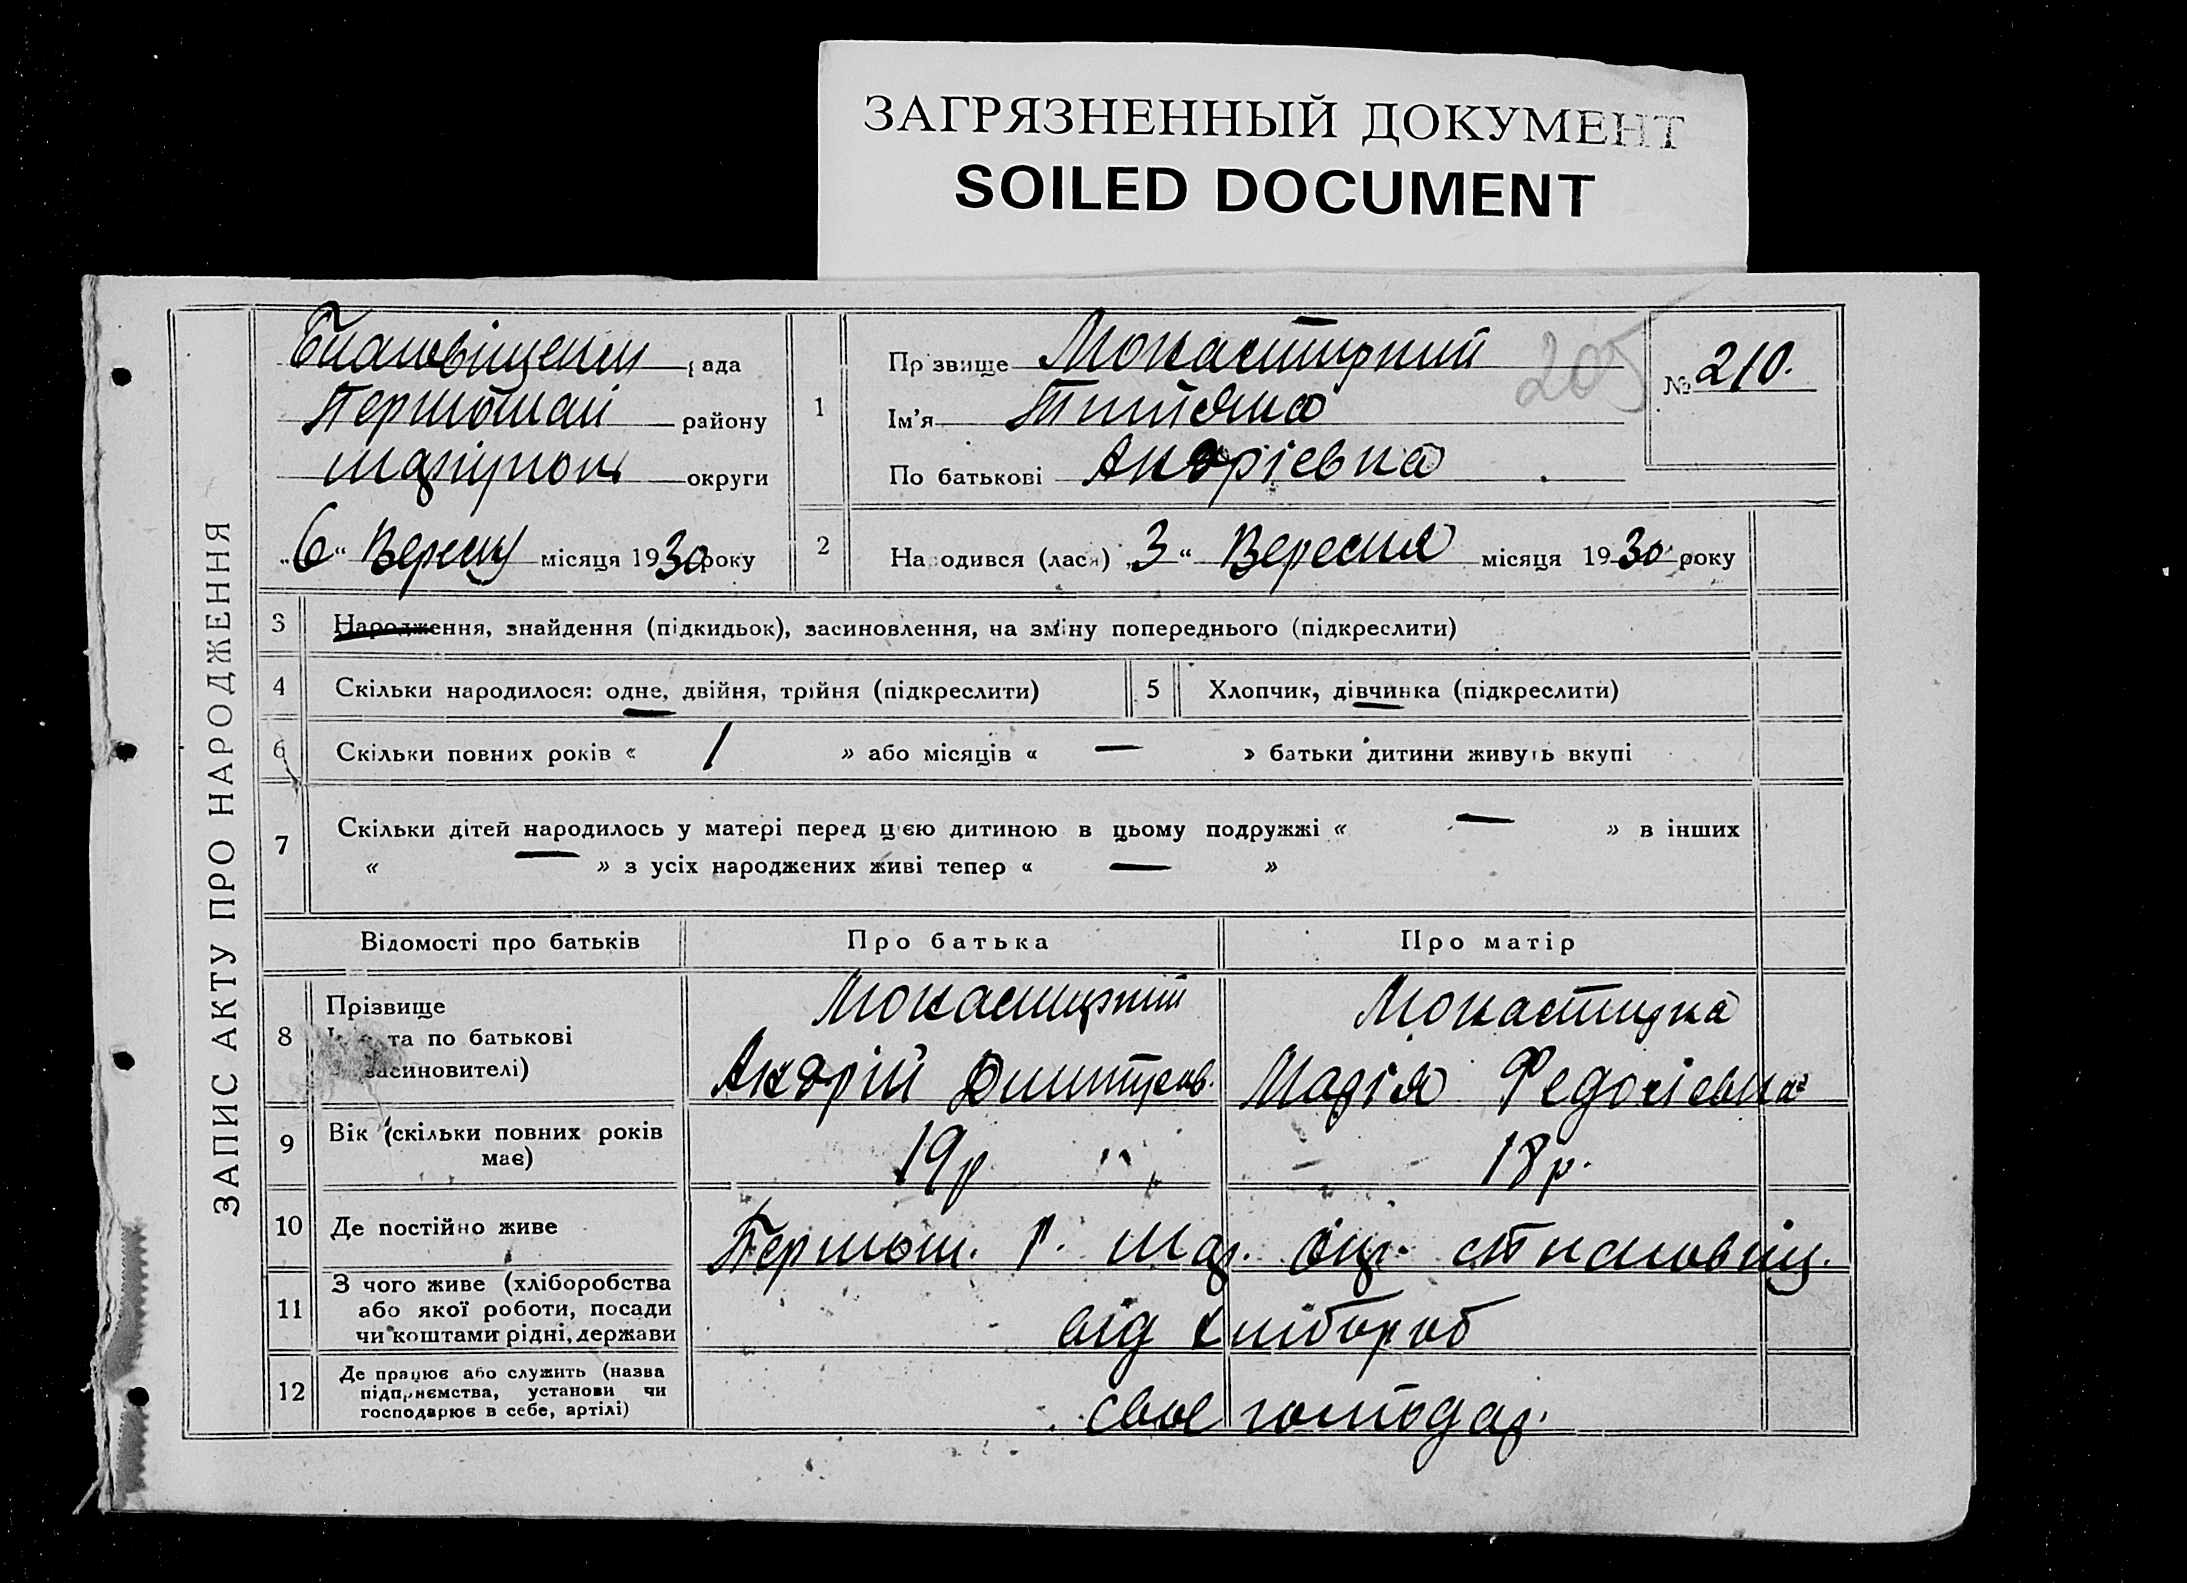 ЗАГРЯЗНЕННЫЙ ДОКУМЕНТ
SOILED DOCUMENT
ЗАПИС АКТУ ПРО НАРОДЖЕННЯ
рада
району
округи
„6“ Вересня місяця 1930 року
1
Прізвище Монастирний
Ім'я
По батькові Андріевна
205
№ 210.
2
Народився (лася) „3“ Вересня місяця 1930 року
3 Народження, знайдення (підкидьок), засиновлення, на зміну попереднього (підкреслити)
4 Скільки народилося: одне, двійня, трійня (підкреслити) 5 Хлопчик, дівчинка (підкреслити)
6 Скільки повних років « 1 » або місяців « — » батьки дитини живуть вкупі
7 Скільки дітей народилось у матері перед цією дитиною в цьому подружжі « — » в інших
« — » з усіх народжених живі тепер « — »
Відомості про батьків Про батька Про матір
8 Прізвище
та по батькові
засиновителі)
Андрій
Марія Федосіевна
9 Вік (скільки повних років має) 19р 18р.
10 Де постійно живе
11 З чого живе (хліборобства або якої роботи, посади чи коштами рідні, держави
від хлібороб
12 Де працює або служить (назва підприємства, установи чи господарює в себе, артілі)
свое господар.